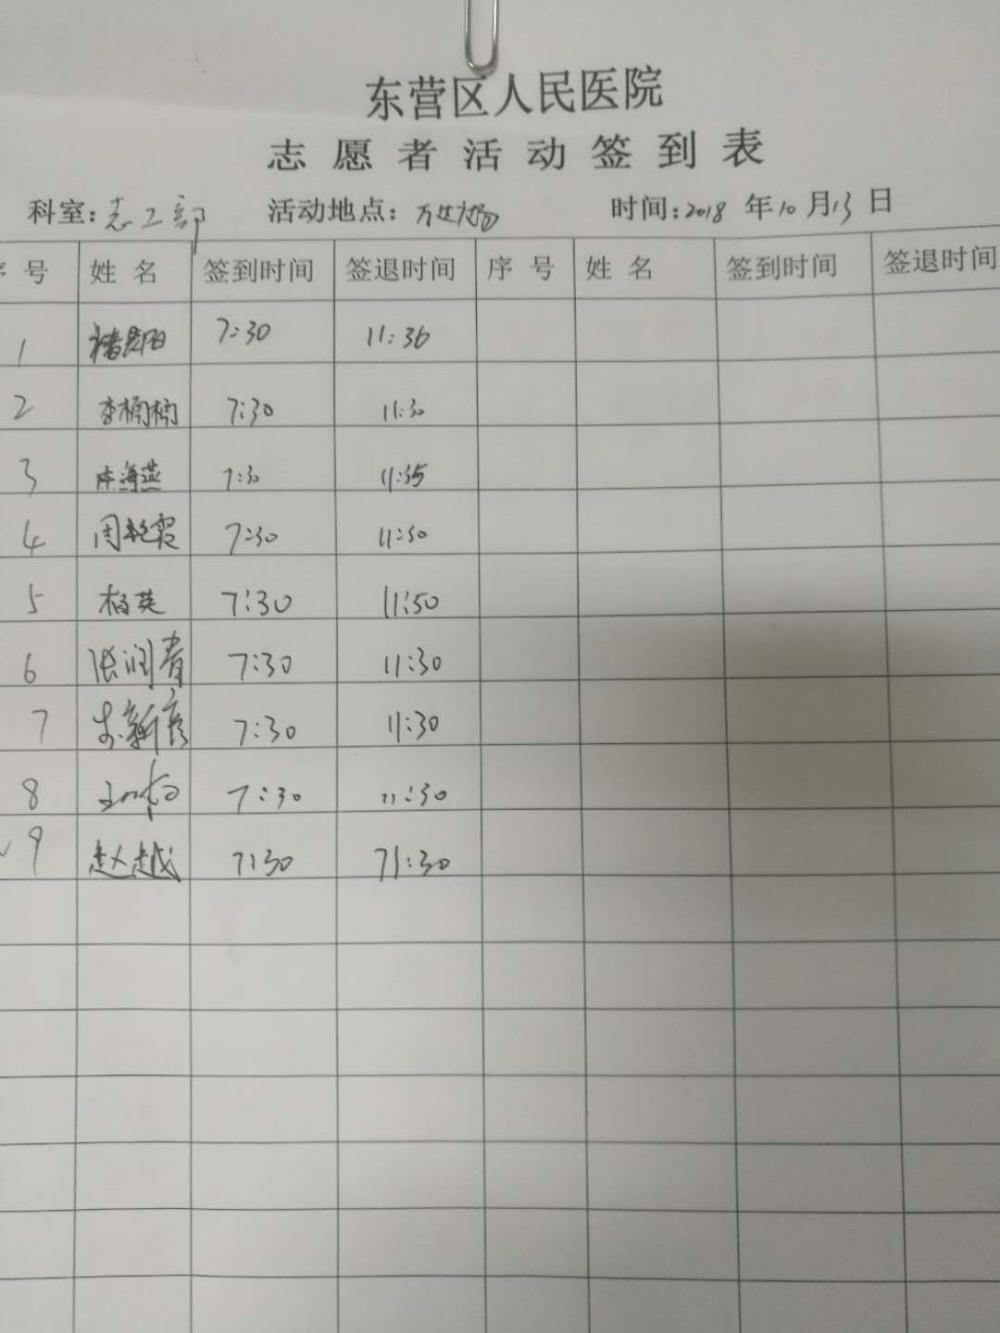 东营区人民医院
志愿者活动签到表
科室：志工部 活动地点： 时间：2018年10月13日
序号 姓名 签到时间 签退时间 序号 姓名 签到时间 签退时间
1 褚昆阳 7:30 11:30
2 李楠楠 7:30 11:30
3 海燕 7:30 11:35
4 周艳霞 7:30 11:30
5 杨英 7:30 11:50
6 张润青 7:30 11:30
7 李新彦 7:30 11:30
8 7:30 11:30
9 赵越 7:30 11:30